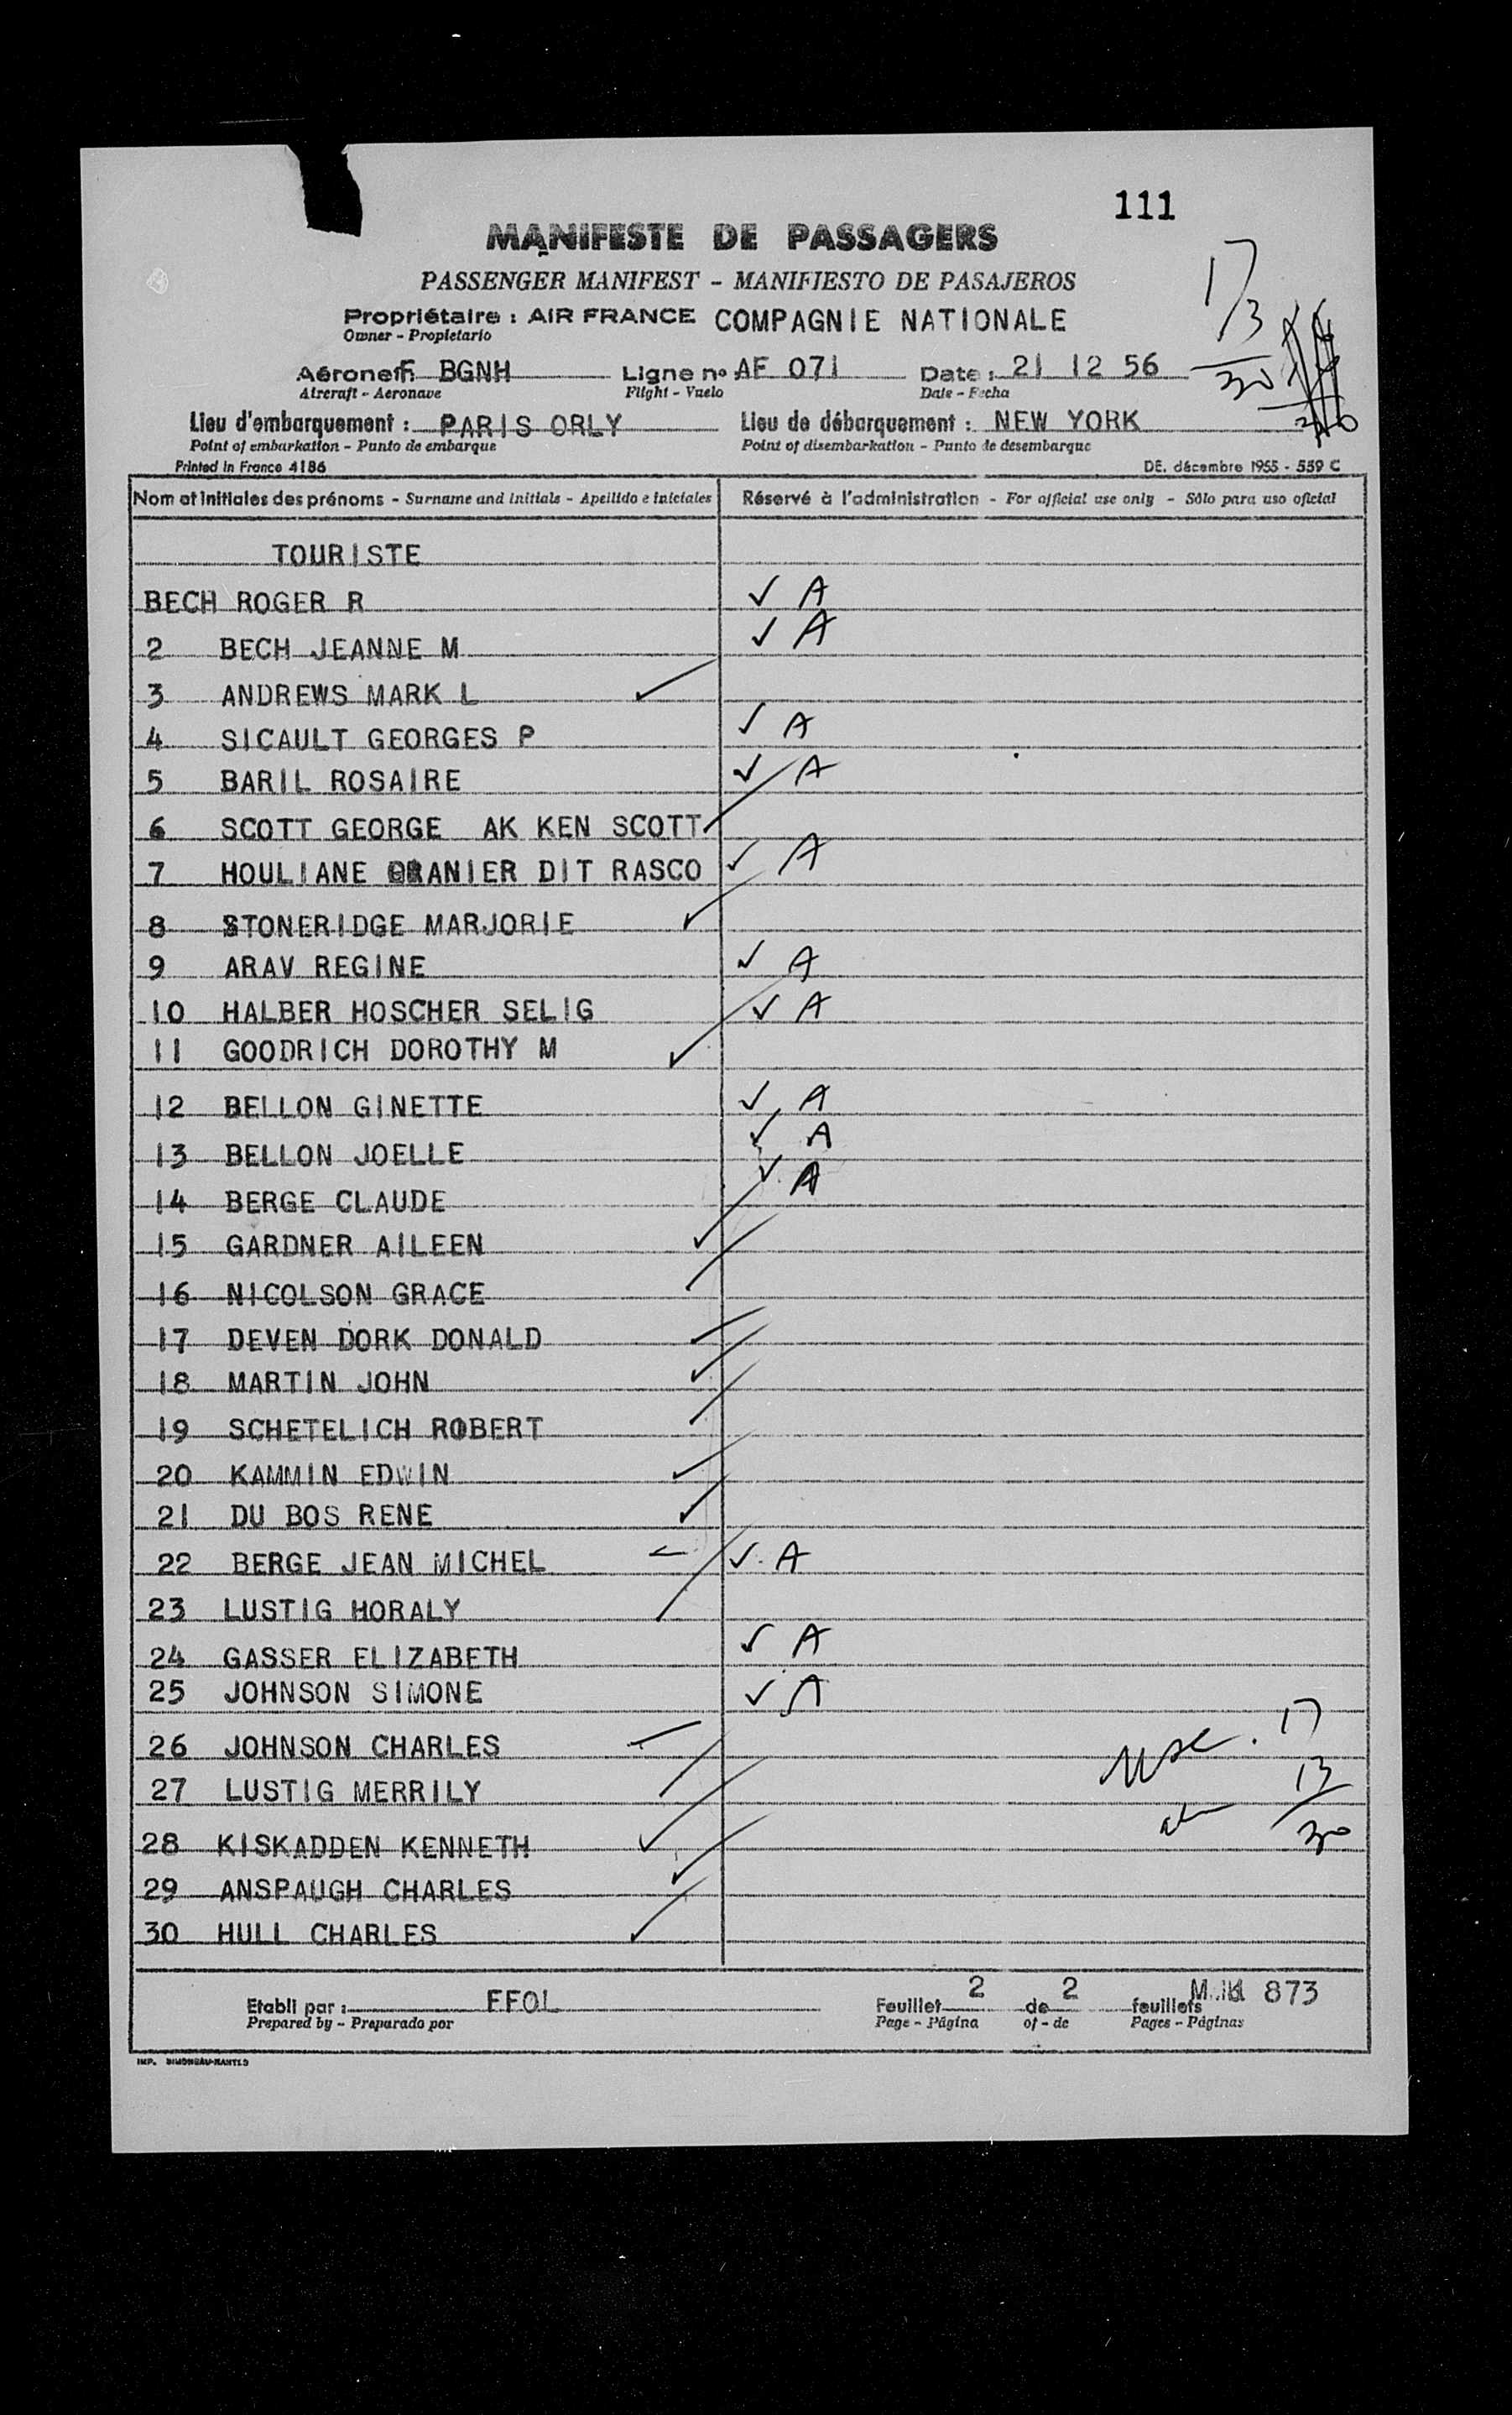 111
MANIFESTE DE PASSAGERS
PASSENGER MANIFEST - MANIFIESTO DE PASAJEROS
Propriétaire : AIR FRANCE COMPAGNIE NATIONALE
Owner - Propietario
Aéronef: F BGNH Ligne nº AF 071 Date : 21 12 56
Aircraft - Aeronave Flight - Vuelo Date - Fecha
17
13
30
Lieu d'embarquement : PARIS ORLY Lieu de débarquement : NEW YORK
Point of embarkation - Punto de embarque Point of disembarkation - Punto de desembarque
Printed in France 4186 DE. décembre 1955 - 559 C
Nom et initiales des prénoms - Surname and initials - Apellido e iniciales Réservé à l'administration - For official use only - Sólo para uso oficial
TOURISTE
BECH ROGER R ✓ A
2 BECH JEANNE M ✓ A
3 ANDREWS MARK L ✓
4 SICAULT GEORGES P ✓ A
5 BARIL ROSAIRE ✓ A
6 SCOTT GEORGE AK KEN SCOTT ✓
7 HOULIANE GRANIER DIT RASCO ✓ A
8 STONERIDGE MARJORIE ✓
9 ARAV REGINE ✓ A
10 HALBER HOSCHER SELIG ✓ A
11 GOODRICH DOROTHY M ✓
12 BELLON GINETTE ✓ A
13 BELLON JOELLE ✓ A
14 BERGE CLAUDE ✓ A
15 GARDNER AILEEN ✓
16 NICOLSON GRACE ✓
17 DEVEN DORK DONALD ✓
18 MARTIN JOHN ✓
19 SCHETELICH ROBERT ✓
20 KAMMIN EDWIN ✓
21 DU BOS RENE ✓
22 BERGE JEAN MICHEL ✓ A
23 LUSTIG HORALY ✓
24 GASSER ELIZABETH ✓ A
25 JOHNSON SIMONE ✓ A
26 JOHNSON CHARLES ✓
usc. 17
27 LUSTIG MERRILY ✓
13
28 KISKADDEN KENNETH ✓
30
29 ANSPAUGH CHARLES ✓
30 HULL CHARLES ✓
Etabli par : FFOL Feuillet 2 de 2 feuillets 873
Prepared by - Preparado por Page - Página of - de Pages - Páginas
IMP. SIMONEAU-NANTES